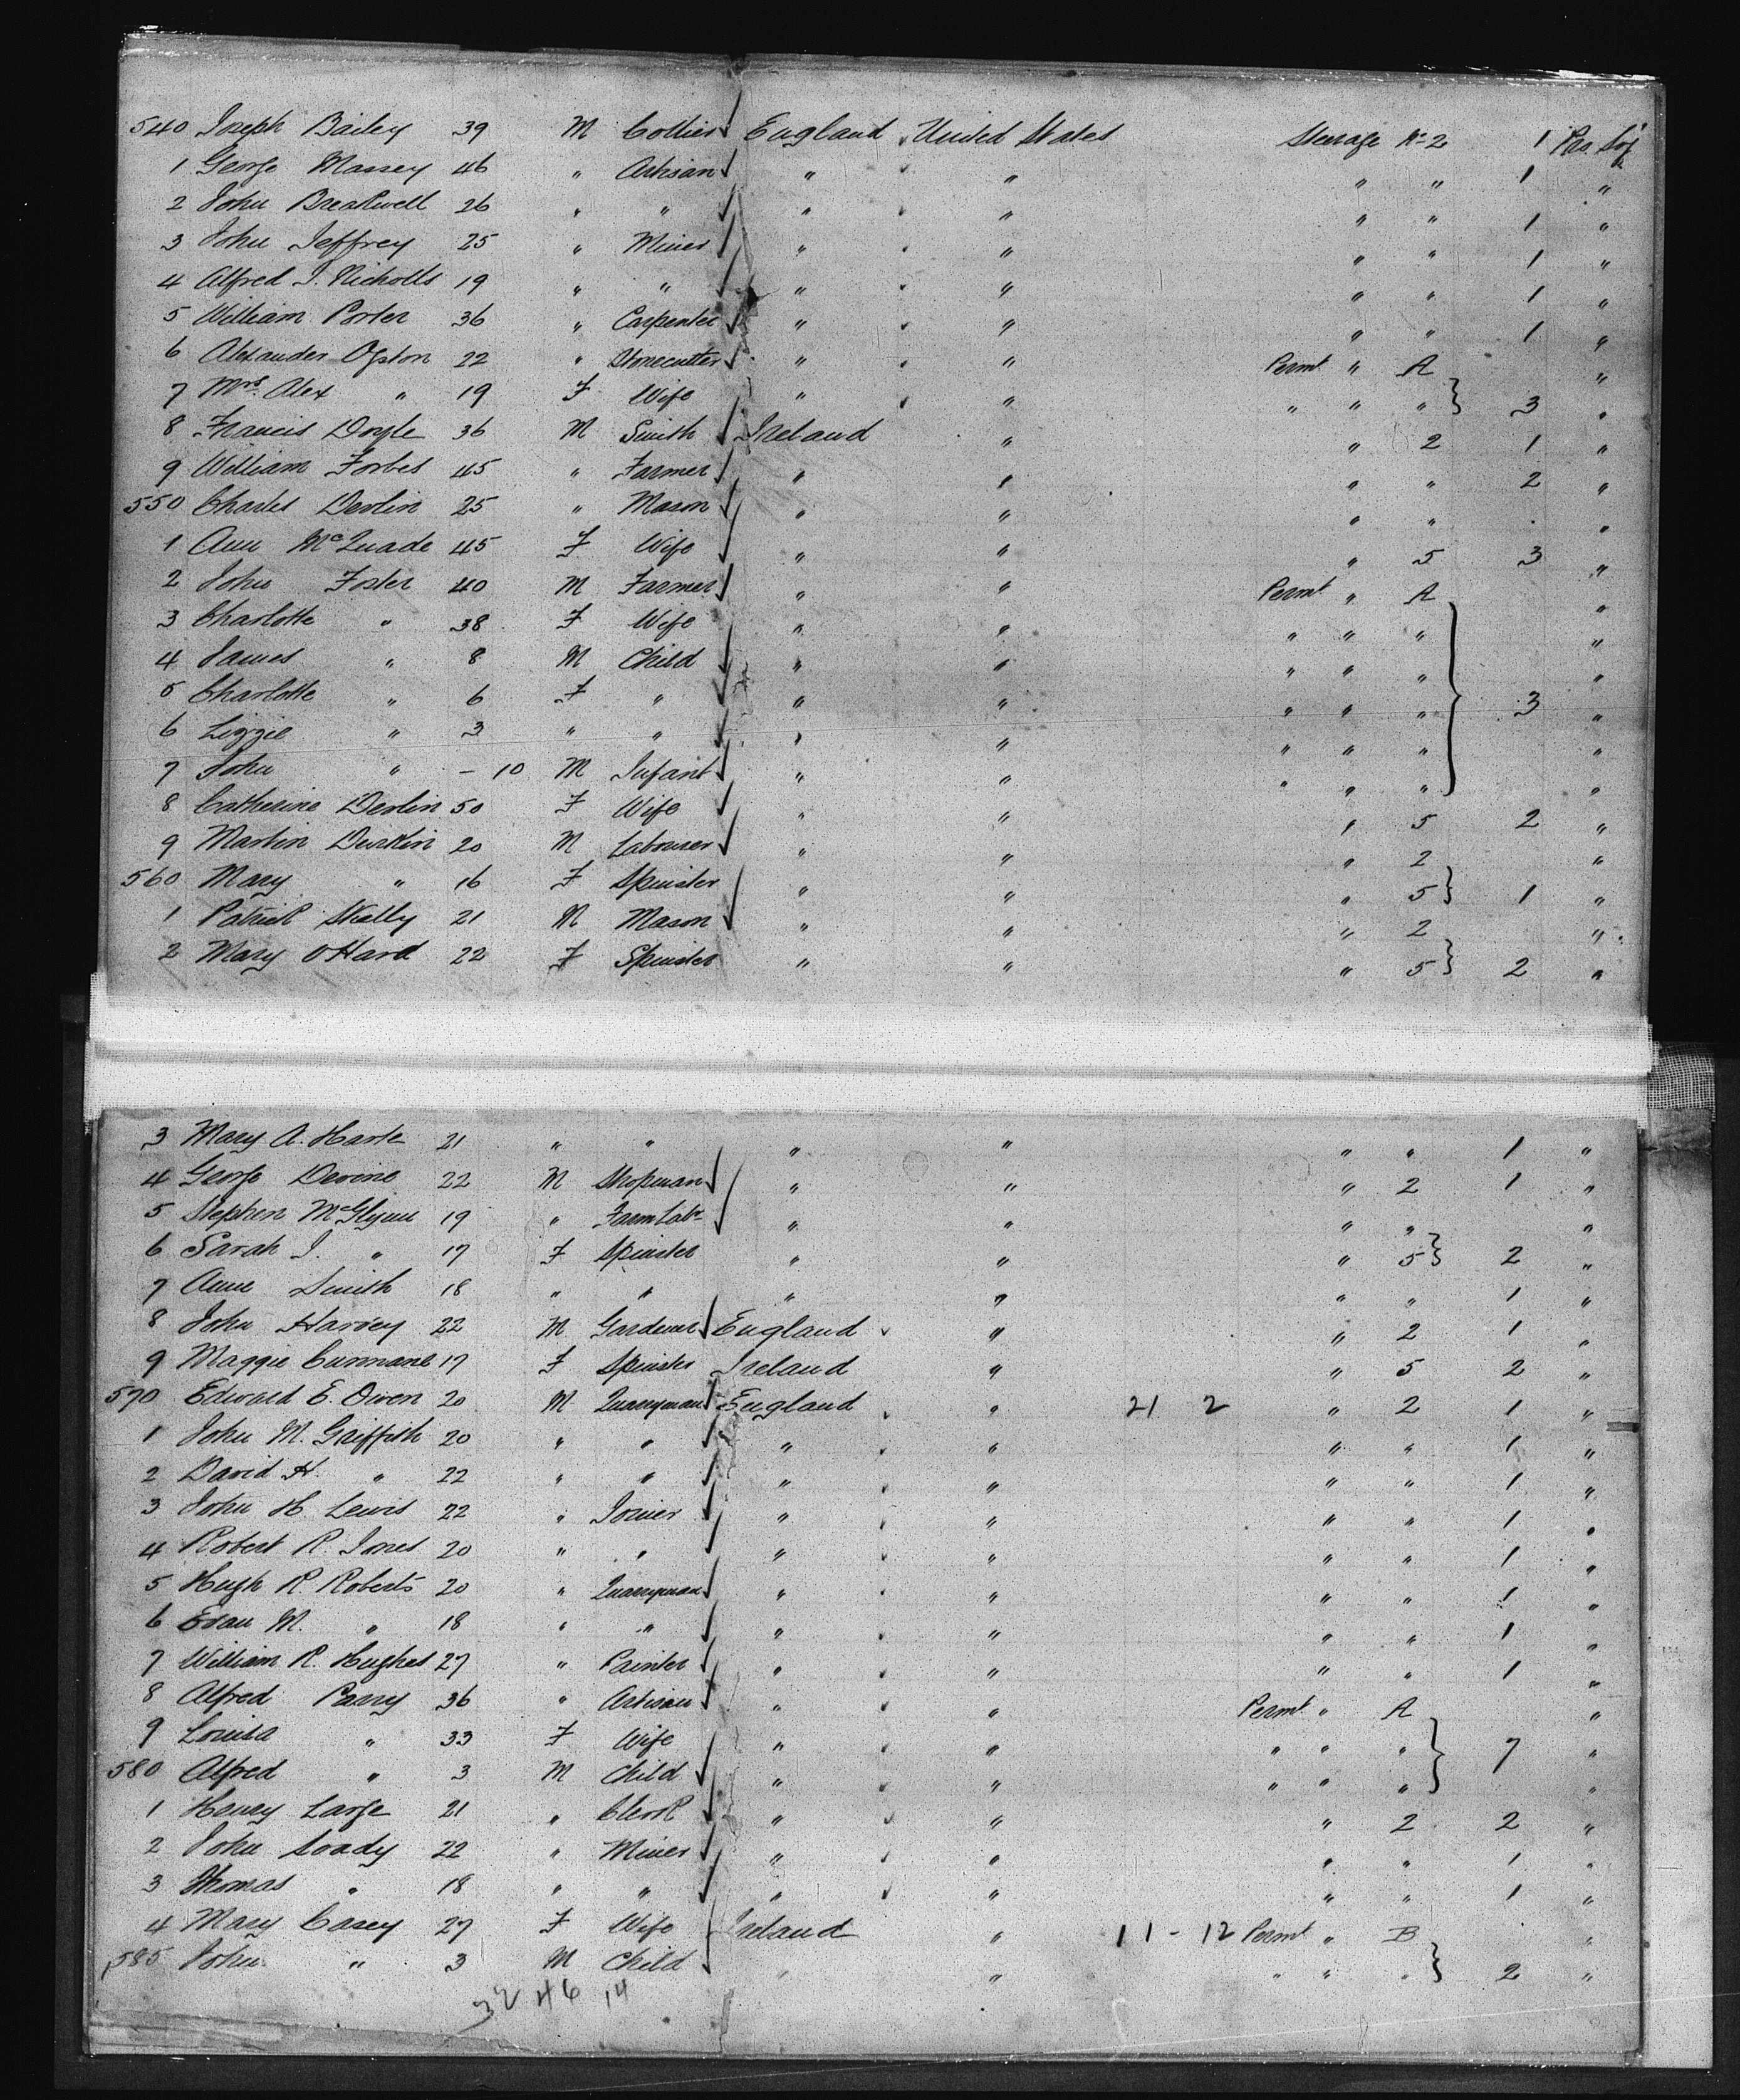 540 Joseph Bailey 39 M Collier England United States Steerage No 2 1 Pro. Soj
1 George Massey 46 " Artisan " " " " 1 "
2 John Breakwell 26 " " " " " " 1 "
3 John Jeffrey 25 " Miner " " " " 1 "
4 Alfred J. Nicholls 19 " " " " " " 1 "
5 William Porter 36 " Carpenter " " " " 1 "
6 Alexander Ogston 22 " Stonecutter " " Permt " A "
7 Mrs. Alex " 19 F Wife " " " " " } 3 "
8 Francis Doyle 36 M Smith Ireland " " 2 1 "
9 William Forbes 45 " Farmer " " " " 2 "
550 Charles Devlin 25 " Mason " " " " "
1 Ann McQuade 45 F Wife " " " 5 3 "
2 John Foster 40 M Farmer " " Permt " A "
3 Charlotte " 38 F Wife " " " " " "
4 James " 8 M Child " " " " " "
5 Charlotte " 6 F " " " " " " } 3 "
6 Lizzie " 3 " " " " " " " "
7 John " - 10 M Infant " " " " " "
8 Catherine Devlin 50 F Wife " " " 5 2 "
9 Martin Durkin 20 M Labourer " " " 2 "
560 Mary " 16 F Spinster " " " 5 } 1 "
1 Patrick Skelly 21 M Mason " " " 2 "
2 Mary O'Hara 22 F Spinster " " " 5 } 2 "
3 Mary A. Harte 21 " " " " " " 1 "
4 George Devine 22 M Shopman " " " 2 1 "
5 Stephen McGlynn 19 " Farm Labr " " " " "
6 Sarah J. " 17 F Spinster " " " 5 } 2 "
7 Anne Smith 18 " " " " " " 1 "
8 John Harvey 22 M Gardener England " " 2 1 "
9 Maggie Curmane 17 F Spinster Ireland " " 5 2 "
570 Edward E. Owen 20 M Quarryman England " 21 2 " 2 1 "
1 John M. Griffith 20 " " " " " " 1 "
2 David H. " 22 " " " " " " 1 "
3 John H Lewis 22 " Joiner " " " " 1 "
4 Robert R. Jones 20 " " " " " " 1 "
5 Hugh R. Roberts 20 " Quarryman " " " " 1 "
6 Evan M. " 18 " " " " " " 1 "
7 William R. Hughes 27 " Painter " " " " 1 "
8 Alfred Parry 36 " Artisan " " Permt " A "
9 Louisa " 33 F Wife " " " " " } 7 "
580 Alfred " 3 M Child " " " " " "
1 Henry Large 21 " Clerk " " " 2 2 "
2 John Soady 22 " Miner " " " " 1 "
3 Thomas " 18 " " " " " " 1 "
4 Mary Casey 27 F Wife Ireland " 11 - 12 Permt " B "
585 John " 3 M Child " " " " " } 2 "
32 46 14